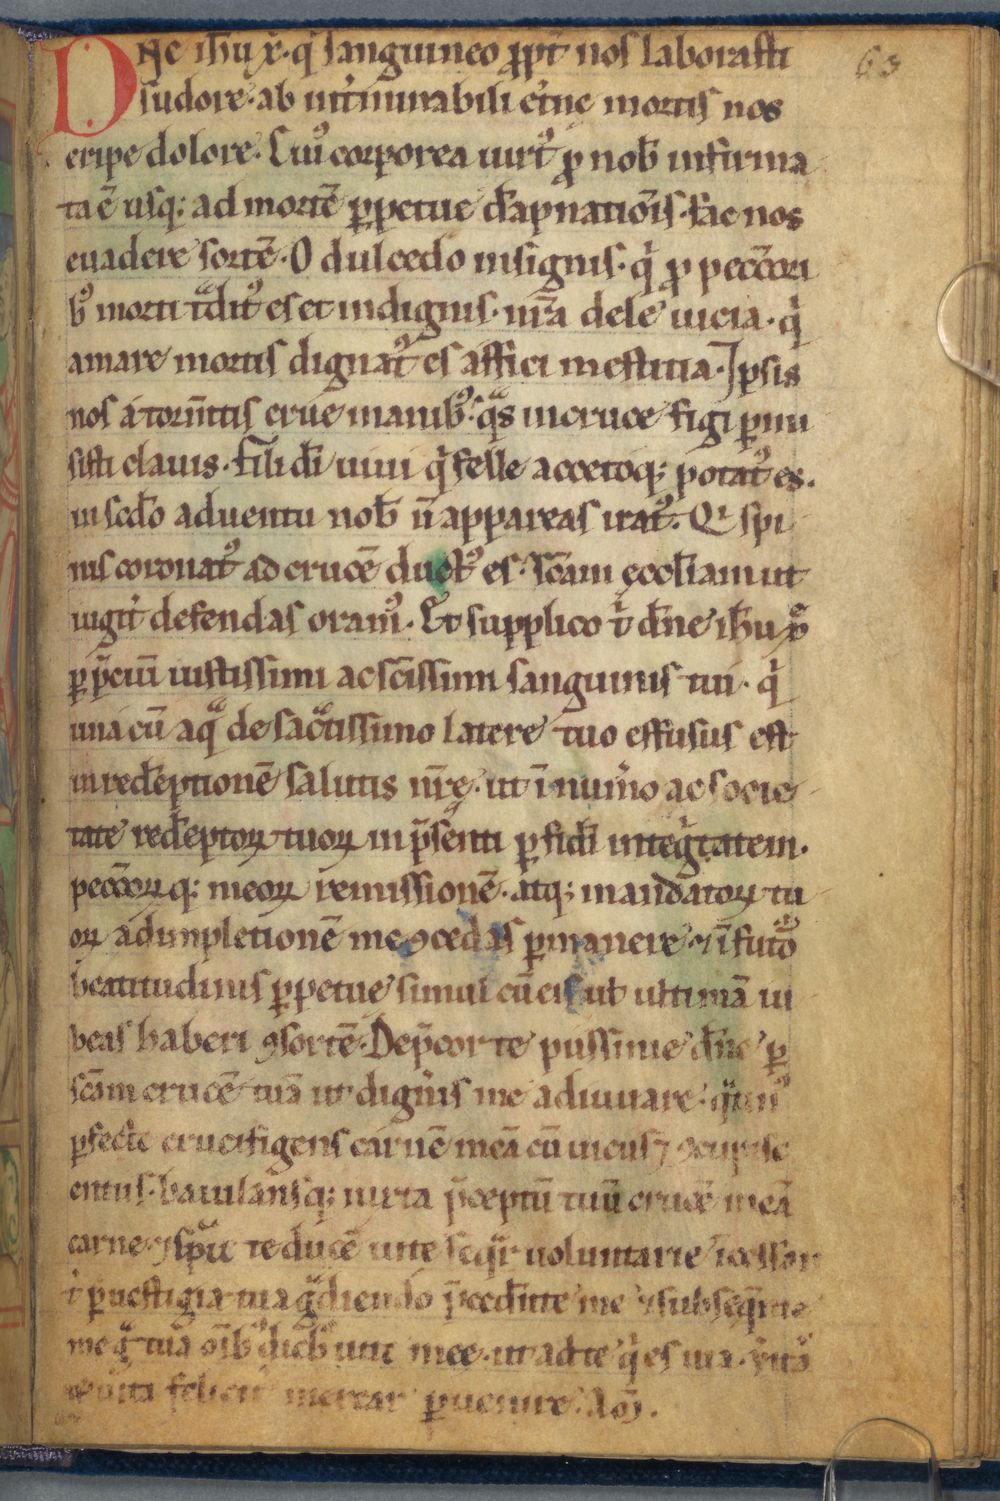 Dn̄e ih̄u xp̄. qͥ sanguineo ꝓpt̄ nos laborasti
sudore. ab intͥminabili et̓ne mortis nos
eripe dolore. Cuiꝰ corporea uirtꝰ ꝓ nob̄ infirma
ta ē usq; ad mortē ꝑpetue da̅pnationis. fac nos
euadere sortē. O dulcedo insignis. qͥ ꝓ peccatori
bꝰ morti tᵃditꝰ es et indignis. nr̄a dele uicia. qͥ
amare mortis dignatꝰ es affici mestitia. Ipsis
nos a torm̄tis erue manibꝰ. qᵃs in cruce figi ꝑmi
sisti clauis. Fili dī uiui qͥ felle acetoq; potatꝰ es.
in secdō aduentu nob̄ n̄ appareas iratꝰ. Qͥ spi
nis coronatꝰ ad crucē ductꝰ es. Sc̄am ęccliam ut
iugit̓ defendas oramꝰ. Et supplico tͥ dn̄e ih̄u xp̄e
ꝑ p̄ciū iustissimi ac sc̄issimi sanguinis tui. qͥ
una cū aqᵃ de sac̄tissimo latere tuo effusus est
in redēptionē salutis nr̄ę. ut ī num̓o ac socie
tate redēptoꝝ tuoꝝ in p̄senti ꝑ fidī integᵃtatem.
peccatoꝝq; meoꝝ remissionē. atq; mandatoꝝ tu
oꝝ adimpletionē me ꝯcedas ꝑmanere. ⁊ ī futᵒo
beatitudinis ꝑpetue simul cū eis ub̓ ultimā iu
beas haberi ꝯsortē. Dep̄cor te piissime dn̄e ꝑ
sc̄am crucē tuā ut dign̓is me adiuuare. qᵃtinꝰ
ꝑfecte crucifigens carnē meā cū uiciis ⁊ ꝯcupisc
entiis. baiulansq; iuxta p̄ceptū tuū crucē meā
carne ⁊ sp̄u te ducē uite seqͥ uoluntarie
tͥ ꝑ uestigia tua gᵃdiendo p̄cedente me ⁊ subseq̄nte
me gᵃ tua oīb̄ dieb̄ uite mee. ut ad te qͥ es uia. ueritas
⁊ uita felicit̓ merear ꝑuenire. Am̄.
63